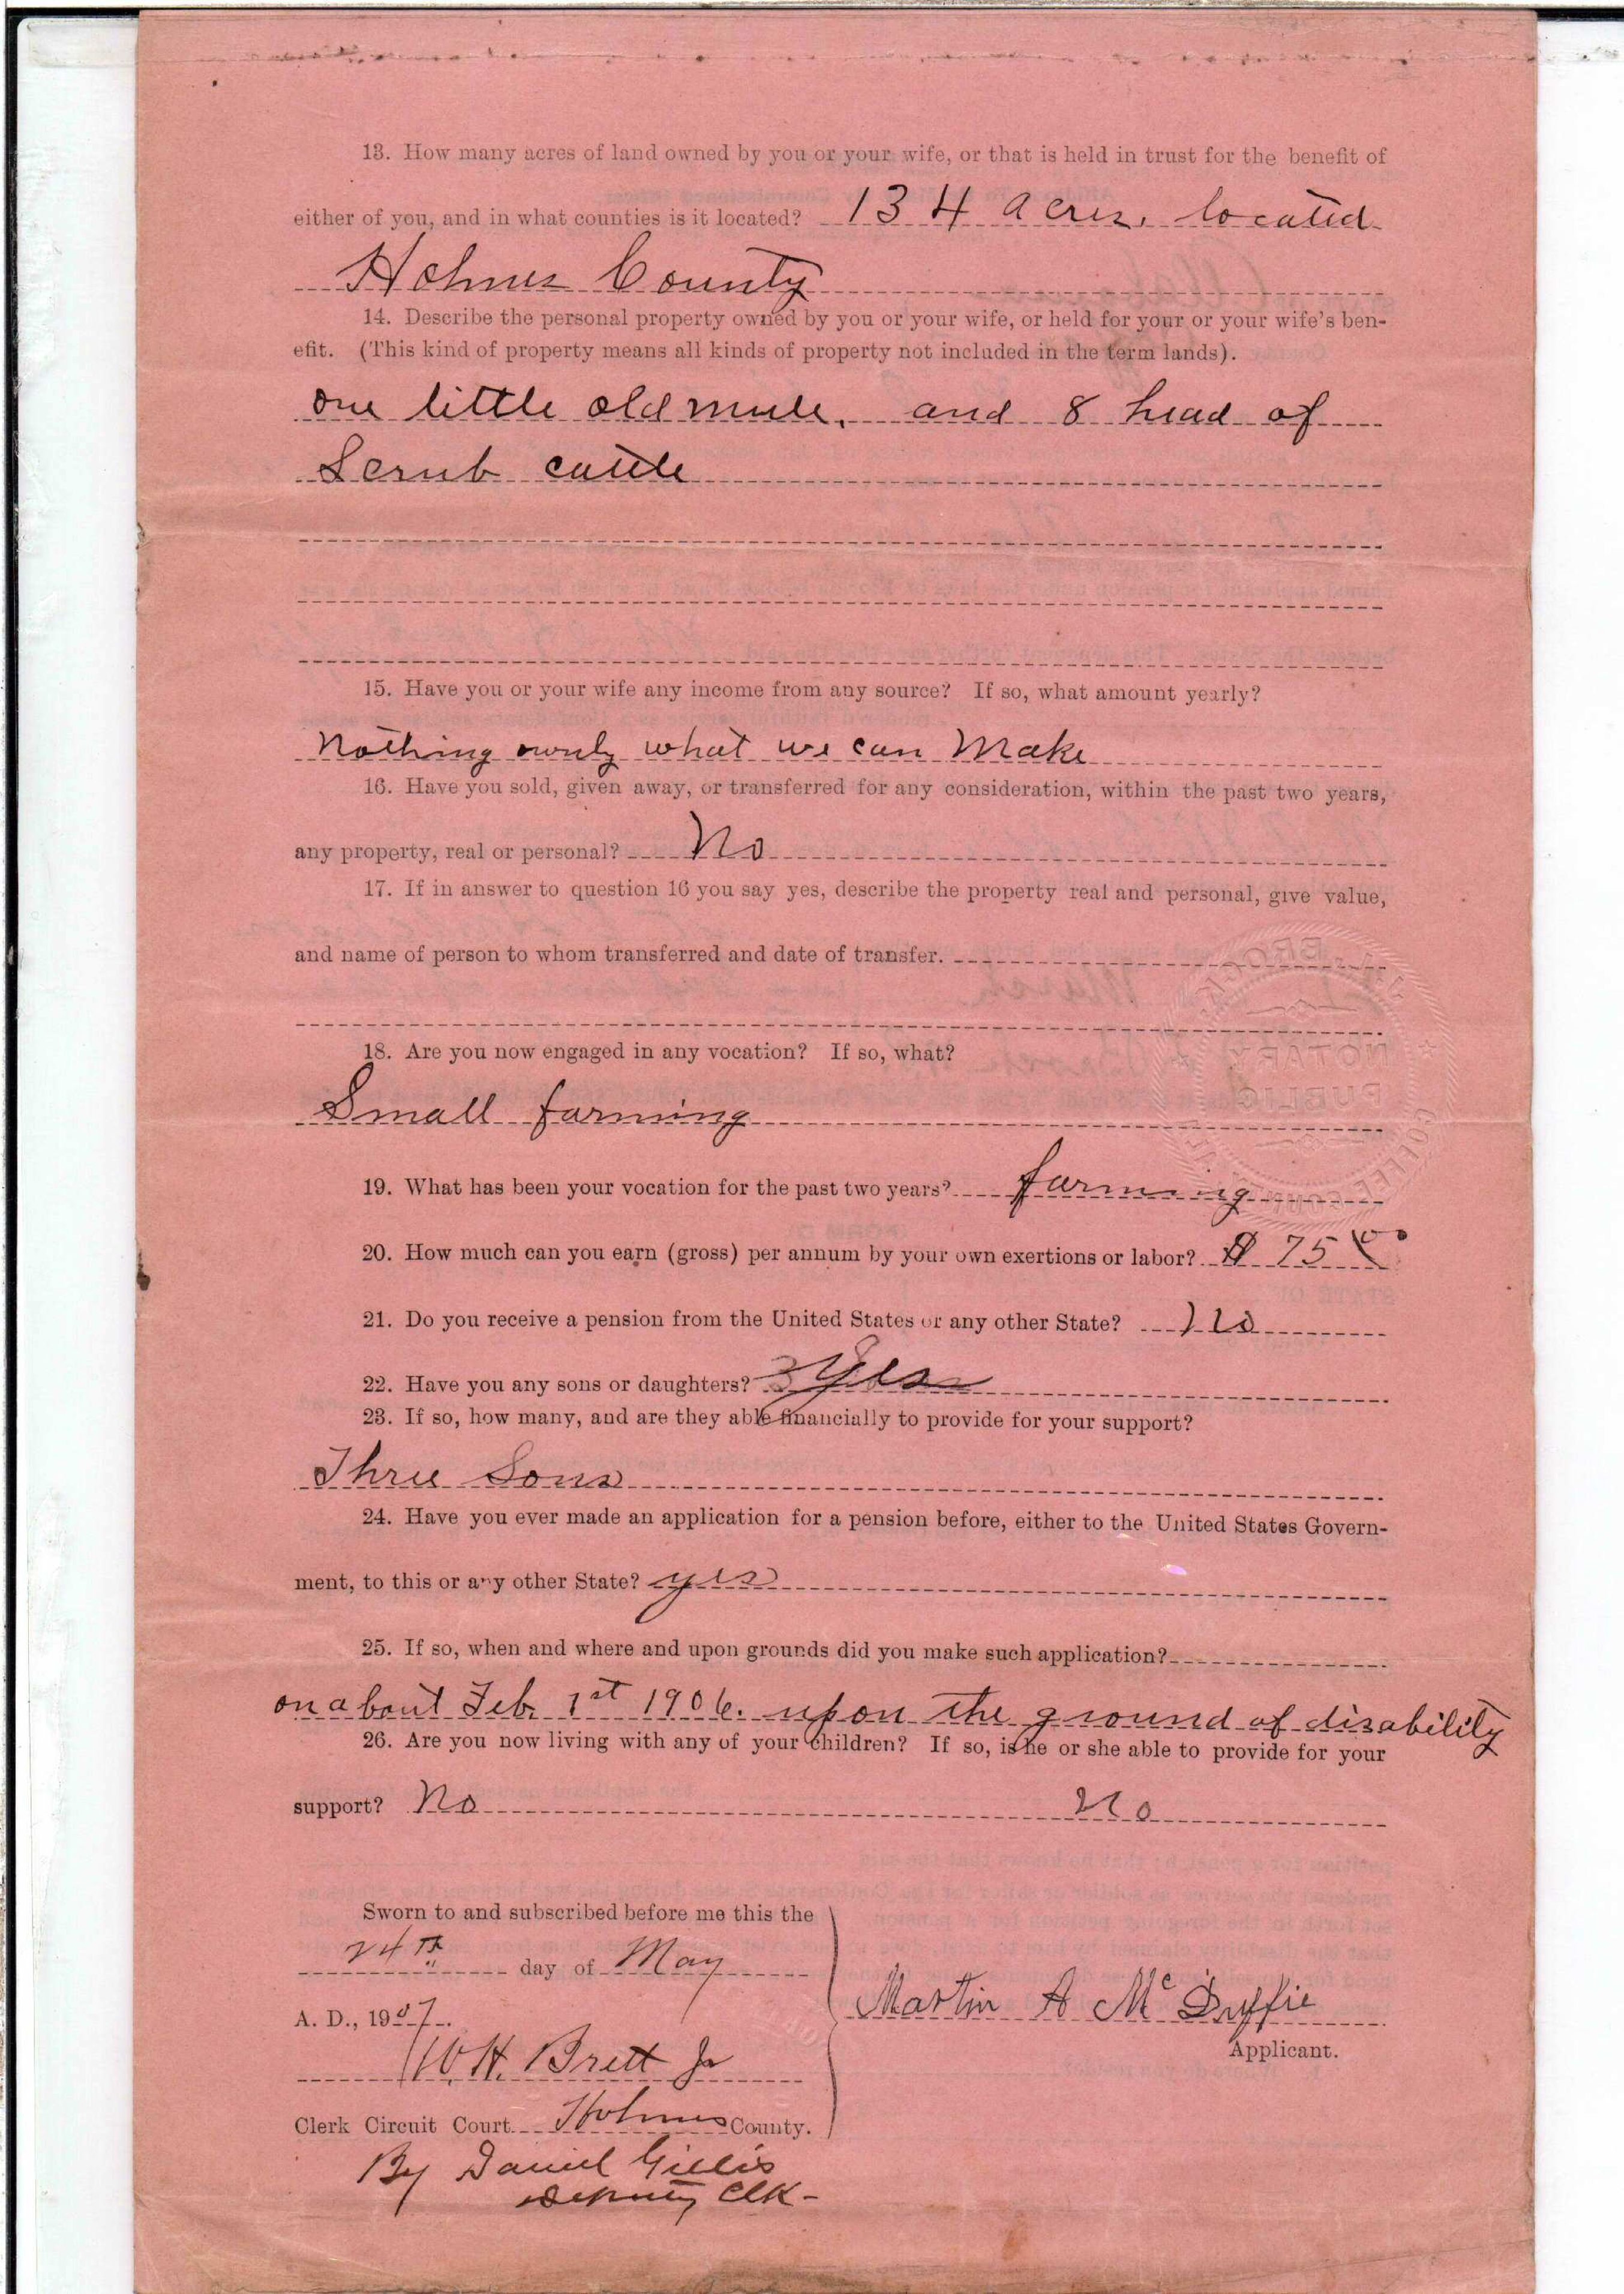 13. How many acres of land owned by you or your wife, or that is held in trust for the benefit of
either of you, and in what counties is it located? 134 acres, located
Holmes County
14. Describe the personal property owned by you or your wife, or held for your or your wife's ben-
efit. (This kind of property means all kinds of property not included in the term lands).
one little old mule, and 8 head of
Scrub cattle
15. Have you or your wife any income from any source? If so, what amount yearly?
Nothing ownly what we can Make
16. Have you sold, given away, or transferred for any consideration, within the past two years,
any property, real or personal? No
17. If in answer to question 16 you say yes, describe the property real and personal, give value,
and name of person to whom transferred and date of transfer.
18. Are you now engaged in any vocation? If so, what?
Small farming
19. What has been your vocation for the past two years? farming
20. How much can you earn (gross) per annum by your own exertions or labor? $ 75
21. Do you receive a pension from the United States or any other State? no
22. Have you any sons or daughters? Yes
23. If so, how many, and are they able financially to provide for your support?
Three Sons
24. Have you ever made an application for a pension before, either to the United States Govern-
ment, to this or any other State? yes
25. If so, when and where and upon grounds did you make such application?
on about Feb. 1st 1906. upon the ground of disability
26. Are you now living with any of your children? If so, is he or she able to provide for your
support? No No
Sworn to and subscribed before me this the
24th day of May
A. D., 1907.
W. H. Brett Jr
Clerk Circuit Court Holmes County.
By Daniel Gillis
Deputy Clk-
Martin A McDuffie
Applicant.
BROCK
NOTARY
PUBLIC
COFFEE COUNTY